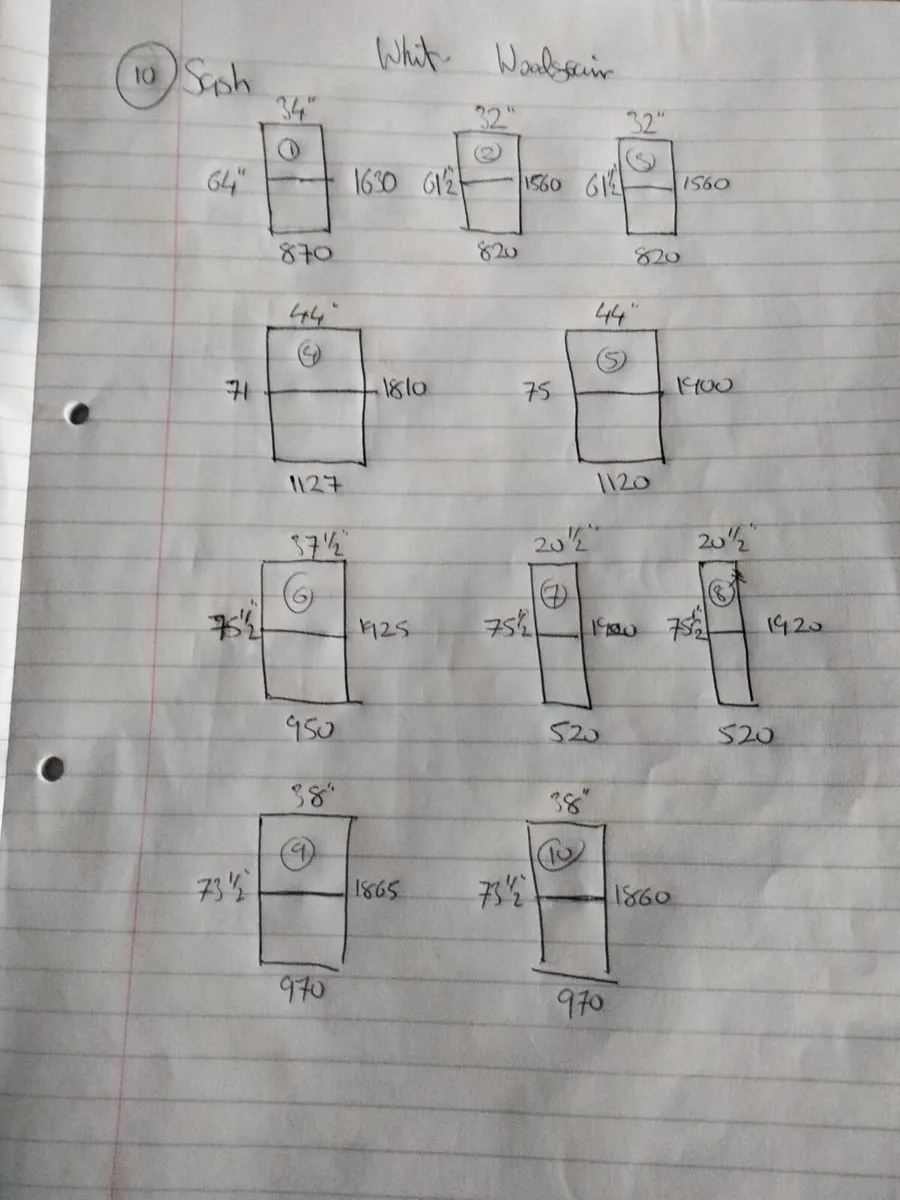 10 Sash White Woodgrain
34" 32" 32"
1 2 3
64" 1630 61½" 1560 61½" 1560
870 820 820
44" 44"
4 5
71 1810 75 1900
1127 1120
37½" 20½" 20½"
6 7 8
75½" 1925 75½" 75½" 1920
950 520 520
38" 38"
9 10
73½" 1865 73½" 1860
970 970